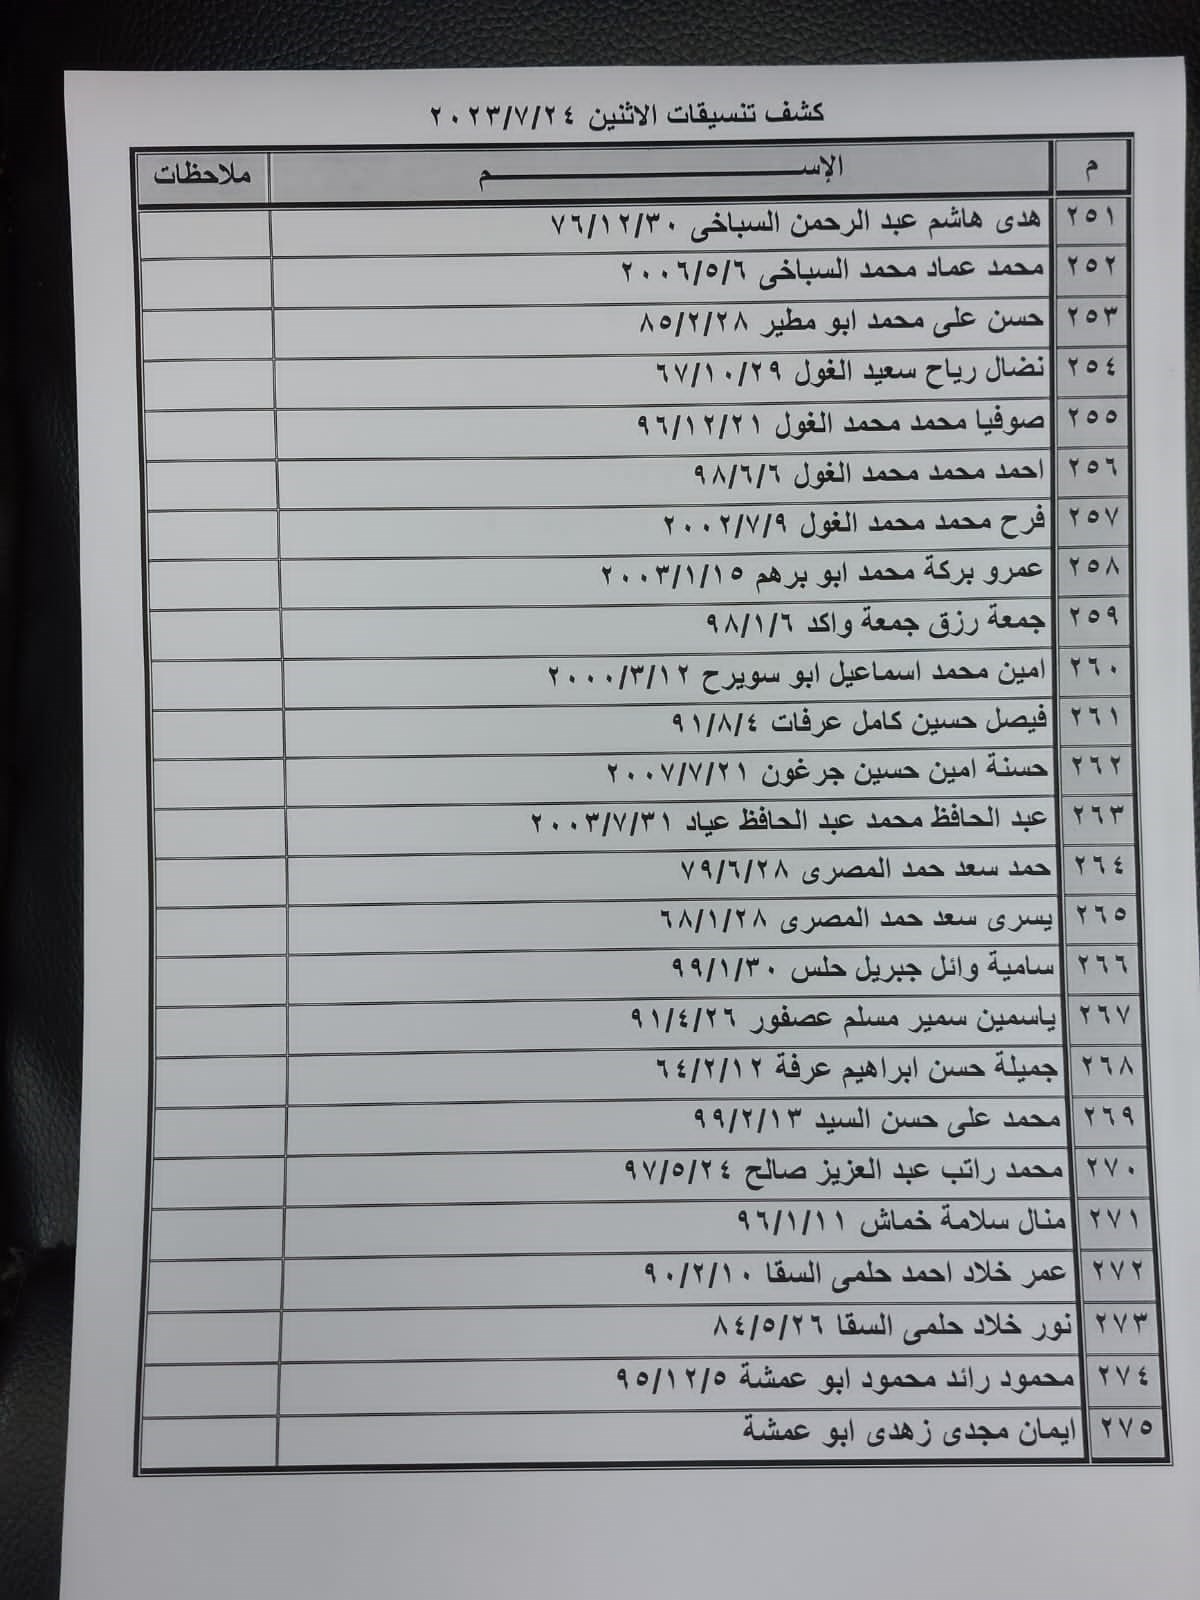 كشف تنسيقات الاثنين ٢٠٢٣/٧/٢٤
م الإســـــم ملاحظات
٢٥١ هدى هاشم عبد الرحمن السباخى ٧٦/١٢/٣٠
٢٥٢ محمد عماد محمد السباخى ٢٠٠٦/٥/٦
٢٥٣ حسن على محمد ابو مطير ٨٥/٢/٢٨
٢٥٤ نضال رياح سعيد الغول ٦٧/١٠/٢٩
٢٥٥ صوفيا محمد محمد الغول ٩٦/١٢/٢١
٢٥٦ احمد محمد محمد الغول ٩٨/٦/٦
٢٥٧ فرح محمد محمد الغول ٢٠٠٢/٧/٩
٢٥٨ عمرو بركة محمد ابو برهم ٢٠٠٣/١/١٥
٢٥٩ جمعة رزق جمعة واكد ٩٨/١/٦
٢٦٠ امين محمد اسماعيل ابو سويرح ٢٠٠٠/٣/١٢
٢٦١ فيصل حسين كامل عرفات ٩١/٨/٤
٢٦٢ حسنة امين حسين جرغون ٢٠٠٧/٧/٢١
٢٦٣ عبد الحافظ محمد عبد الحافظ عياد ٢٠٠٣/٧/٣١
٢٦٤ حمد سعد حمد المصرى ٧٩/٦/٢٨
٢٦٥ يسرى سعد حمد المصرى ٦٨/١/٢٨
٢٦٦ سامية وائل جبريل حلس ٩٩/١/٣٠
٢٦٧ ياسمين سمير مسلم عصفور ٩١/٤/٢٦
٢٦٨ جميلة حسن ابراهيم عرفة ٦٤/٢/١٢
٢٦٩ محمد على حسن السيد ٩٩/٢/١٣
٢٧٠ محمد راتب عبد العزيز صالح ٩٧/٥/٢٤
٢٧١ منال سلامة خماش ٩٦/١/١١
٢٧٢ عمر خلاد احمد حلمى السقا ٩٠/٢/١٠
٢٧٣ نور خلاد حلمى السقا ٨٤/٥/٢٦
٢٧٤ محمود رائد محمود ابو عمشة ٩٥/١٢/٥
٢٧٥ ايمان مجدى زهدى ابو عمشة